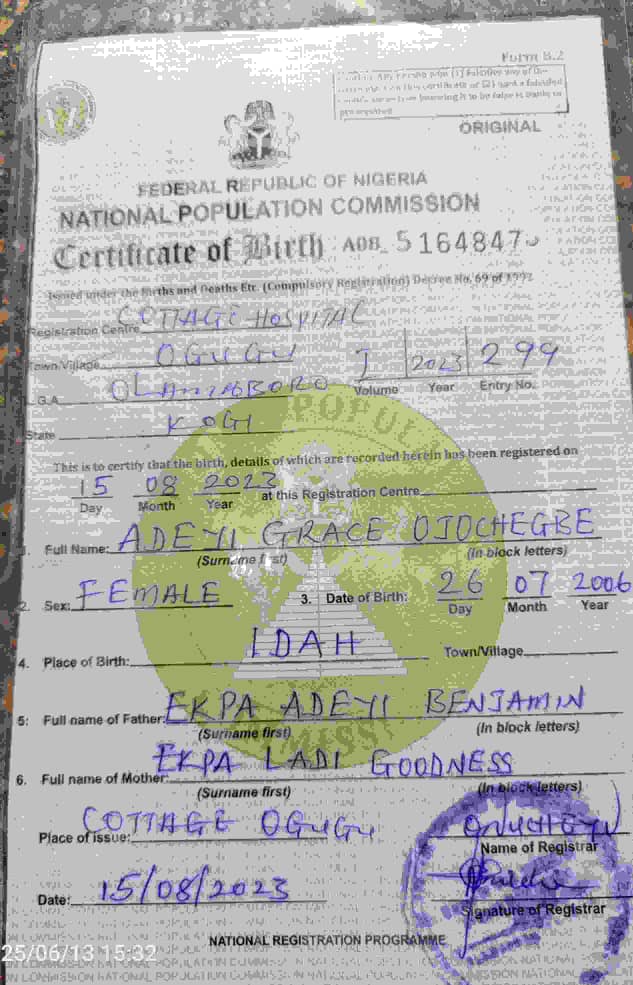 Form B.2
ORIGINAL
FEDERAL REPUBLIC OF NIGERIA
NATIONAL POPULATION COMMISSION
Certificate of Birth AOB 5164847
Issued under the Births and Deaths Etc. (Compulsory Registration) Decree No. 69 of 1992
Registration Centre COTTAGE HOSPITAL
Town/Village OGUGU
I 2023 299
Volume Year Entry No.
L.G.A. OLAMABORO
State KOGI
This is to certify that the birth, details of which are recorded herein has been registered on
15 08 2023 at this Registration Centre
Day Month Year
1. Full Name: ADEYI GRACE OJOCHEGBE
(Surname first) (In block letters)
2. Sex: FEMALE 3. Date of Birth: 26 07 2006
Day Month Year
4. Place of Birth: IDAH Town/Village
5: Full name of Father: EKPA ADEYI BENJAMIN
(Surname first) (In block letters)
6. Full name of Mother: EKPA LADI GOODNESS
(Surname first) (In block letters)
Place of issue: COTTAGE OGUGU
Name of Registrar
Date: 15/08/2023
Signature of Registrar
NATIONAL REGISTRATION PROGRAMME
25/06/13 15:32